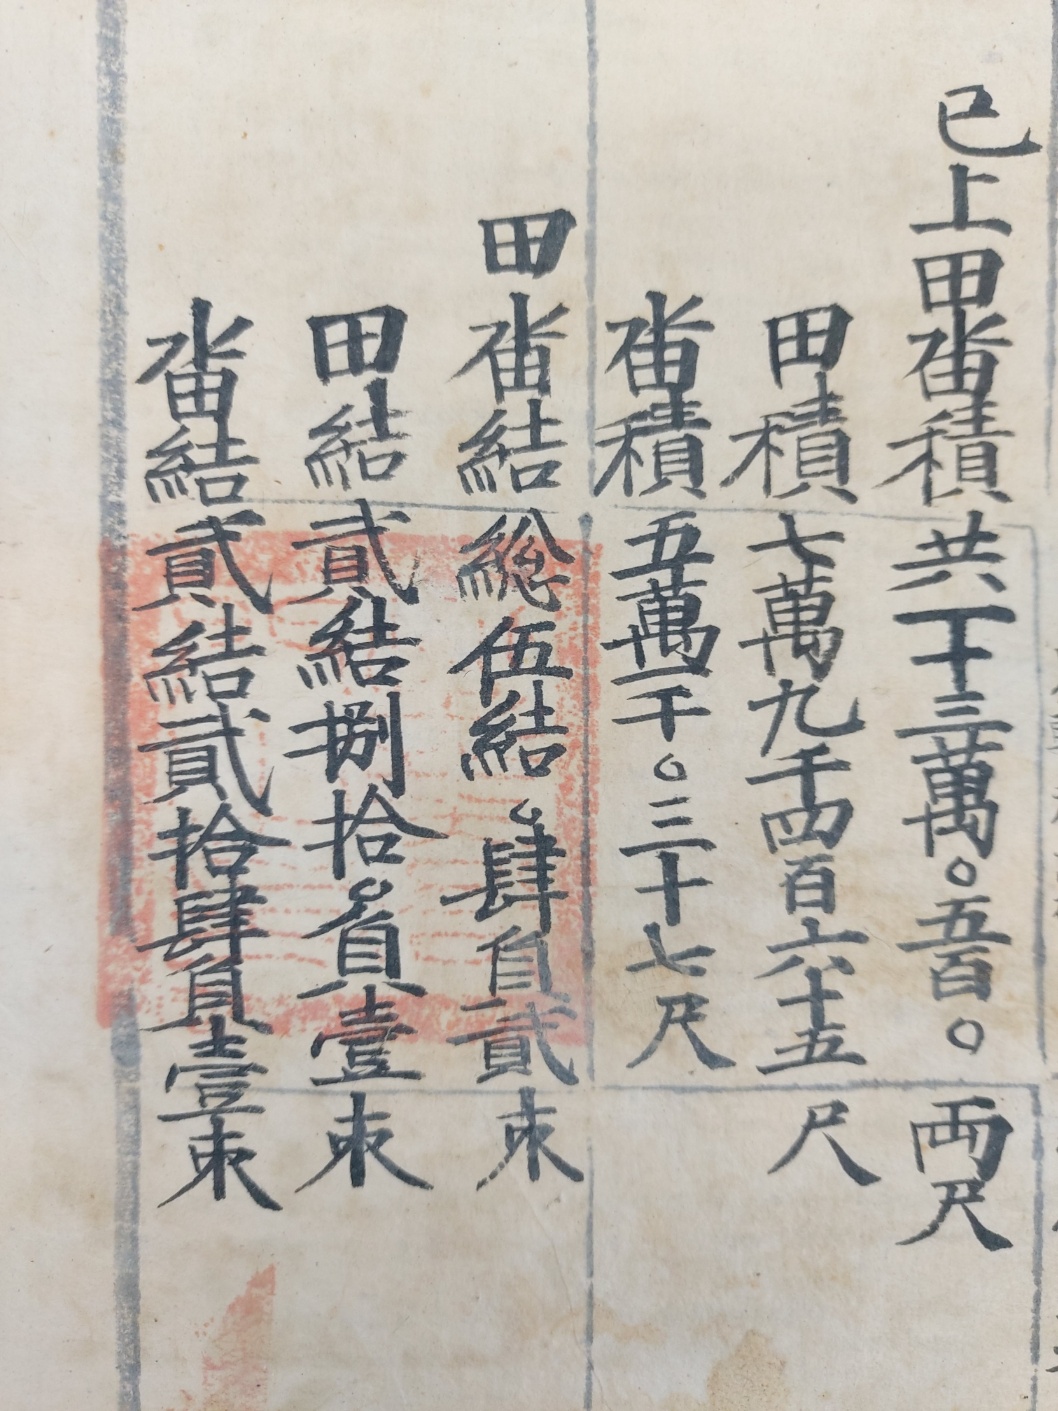 已上田畓積共一十三萬○五百○両尺
田積七萬九千四百六十五尺
畓積五萬一千○三十七尺
田畓結総伍結○肆負貳束
田結貳結捌拾○負壹束
畓結貳結貳拾肆負壹束